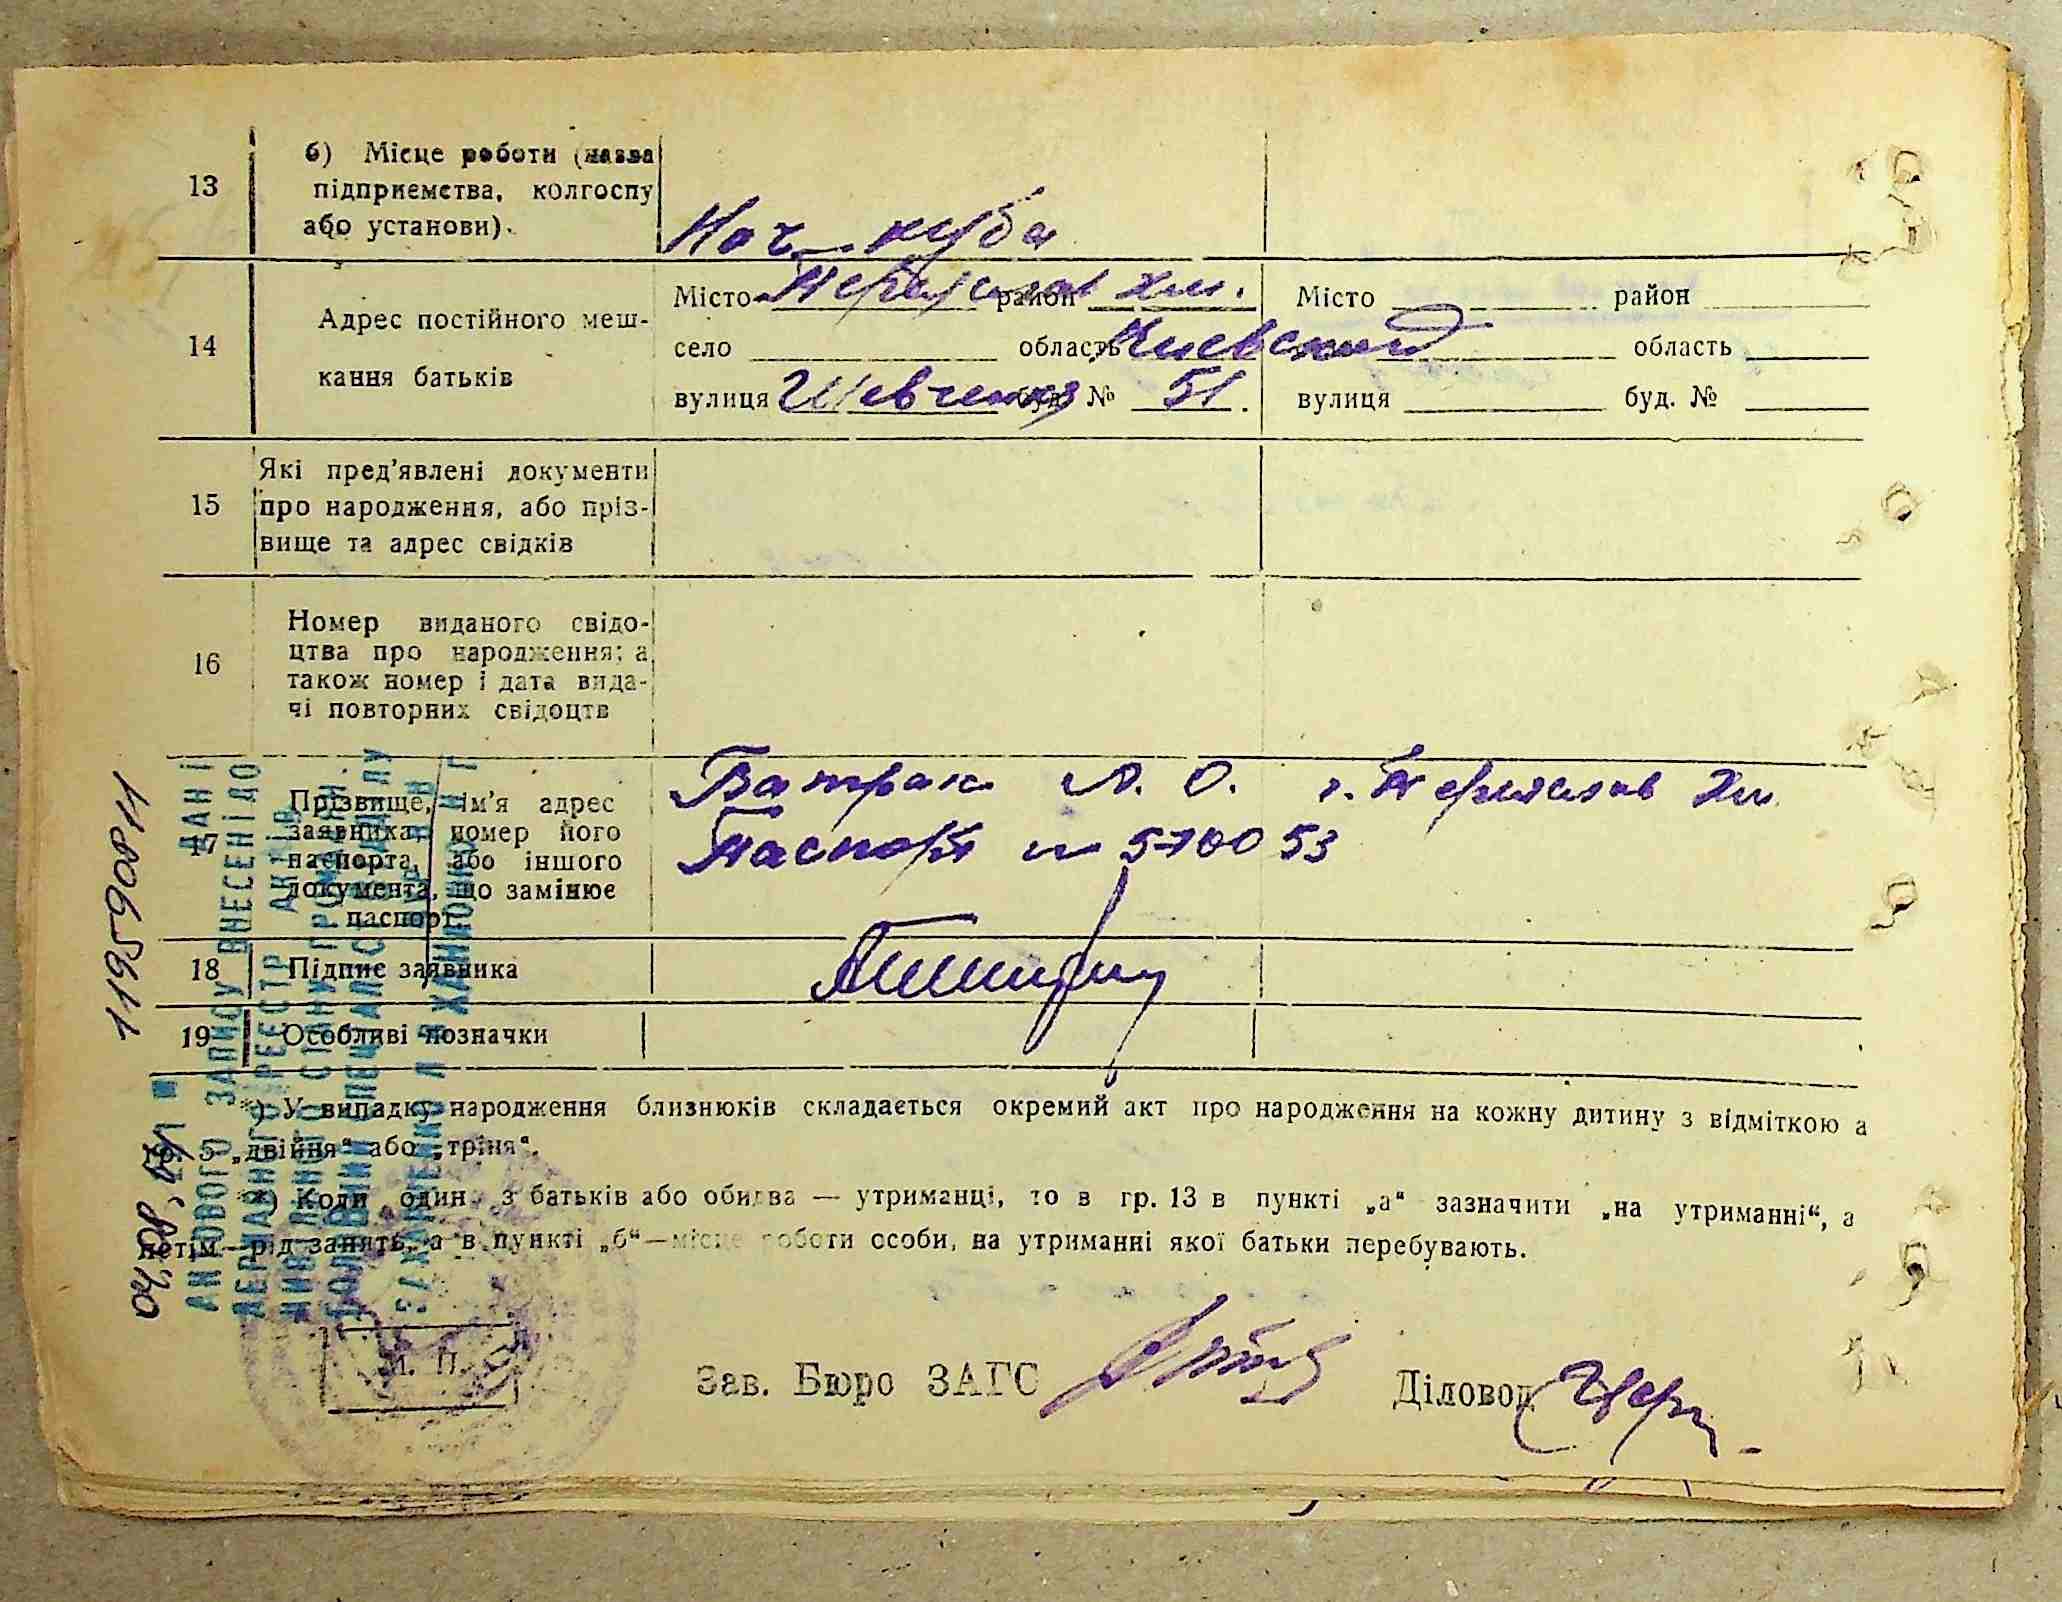 13
б) Місце роботи (назва
підприємства, колгоспу
або установи).
Нач. клуба
14
Адрес постійного меш-
кання батьків
Місто Переяслав район Хм.
село область Киевской
вулиця Шевченка буд. № 51
Місто район
область
вулиця буд. №
15
Які пред'явлені документи
про народження, або пріз-
вище та адрес свідків
16
Номер виданого свідо-
цтва про народження; а
також номер і дата вида-
чі повторних свідоцтв
17
Прізвище, ім'я адрес
заявника, номер його
паспорта, або іншого
документа, що замінює
паспорт
Батрак А. О. г. Переяслав Хм.
Паспорт № 570053
18 Підпис заявника
19 Особливі позначки
*) У випадку народження близнюків складається окремий акт про народження на кожну дитину з відміткою в
гр. 5 „двійня“ або „тріня“.
**) Коли один з батьків або обидва — утриманці, то в гр. 13 в пункті „а“ зазначити „на утриманні“, а
потім—рід занять, а в пункті „б“—місце роботи особи, на утриманні якої батьки перебувають.
М. П.
Зав. Бюро ЗАГС
Діловод
11959081
ДАНІ
АКТОВОГО ЗАПИСУ ВНЕСЕНІ ДО